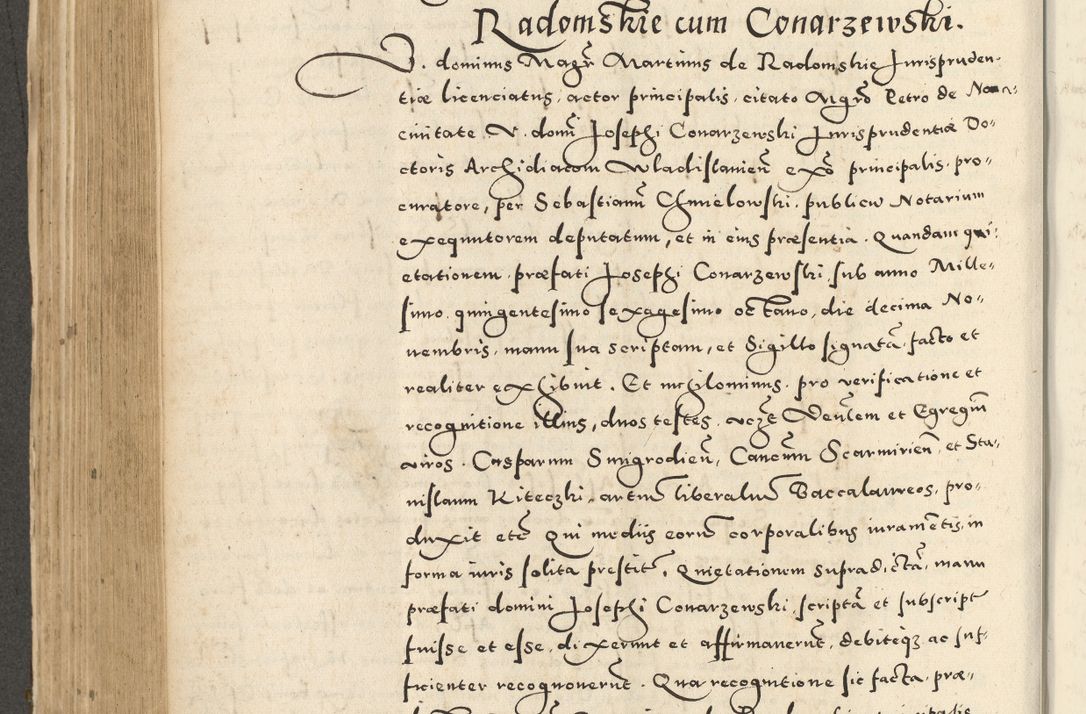 Radomskie cum Conarzewski.
V. dominus Magr̃ Martinus de Radomskie Jurispruden-
tiæ licenciatus, actor principalis, citato Mgrõ Petro de
ciuitate V. domĩ Josephi Conarzewski Jurisprudentiæ Do=
ctoris Archidiaconi Wladislauieñ exõ principalis, pro=
curatore, per Sebastianũ Chmielowski, publicũ Notarium
exequutorem deputatum, et in eius præsentia. Quandam qui=
etationem præfati Josephi Conarzewski, sub anno Mille=
simo quingentesimo sexagesimo octauo, die decima No=
uembris, manu sua scriptam, et Sigillo signatã, facto et
realiter exhibuit. Et nichilominus, pro verificatione et
recognitione illius, duos testes, vcz̃t et Egregiũ
viros, Casparum Smigrodieñ, Scarmirieñ, et Sta=
nislaum Kiteczki, artiũ liberaliũ Baccalaureos, pro=
duxit etc̃ Qui mediis eorũ corporalibus iuramẽtis, in
forma iuris solita prestit̃, Quietationem supradictã, manu
præfati domini Josephi Conarzewski, scriptã et subscript
fuisse et esse, dixerunt et affirmauerũt, debiteqz ac suf=
ficienter recognouerũt. Qua recognitione sic facta, præ=